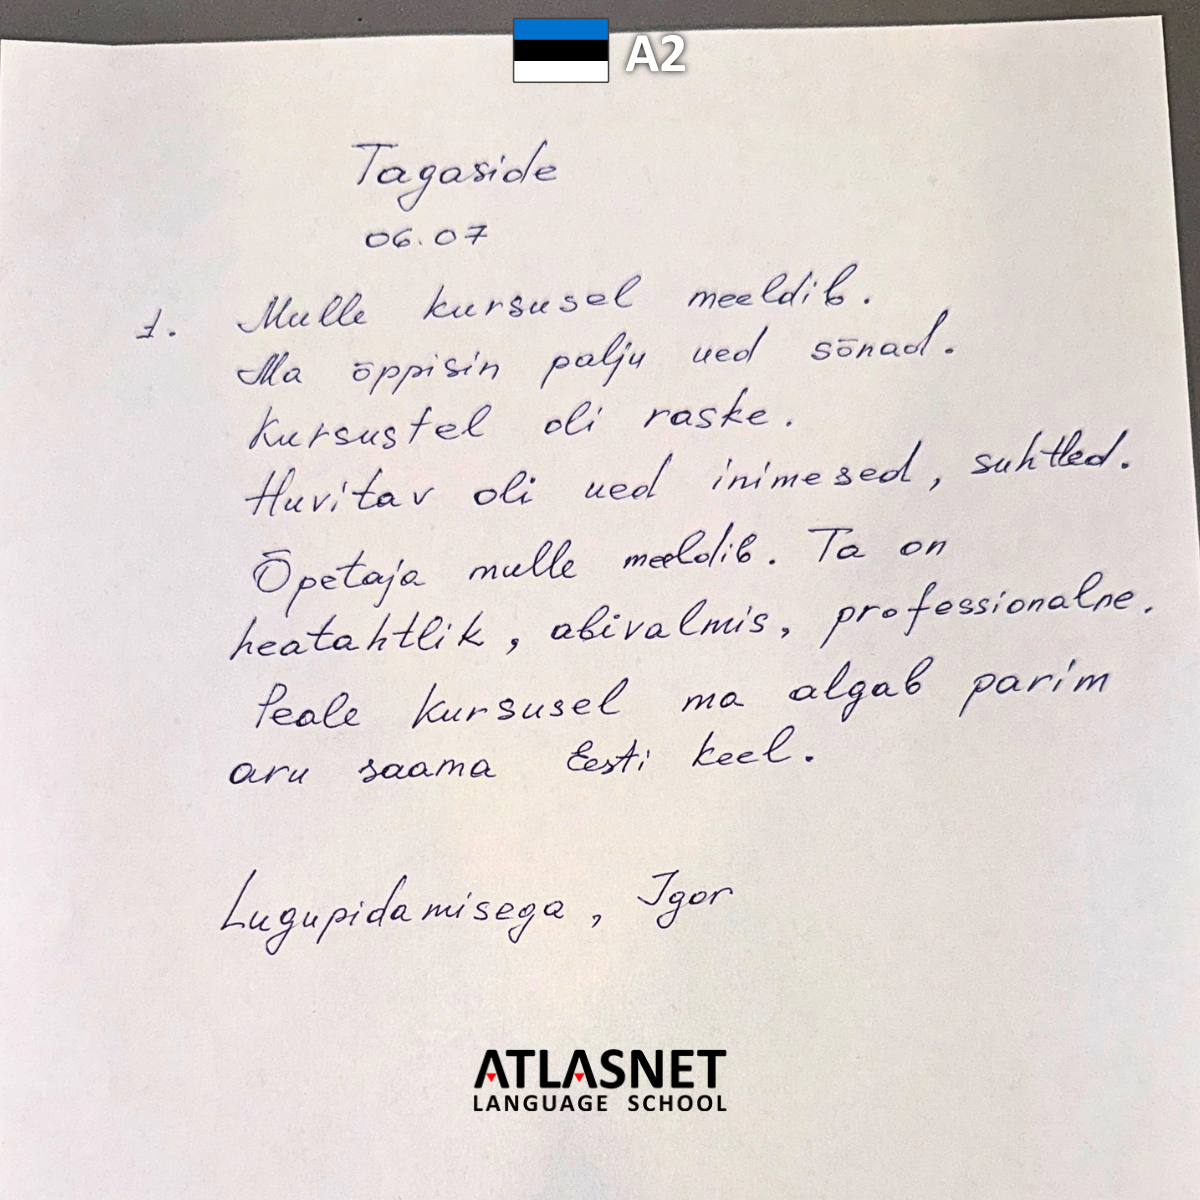 A2
Tagaside
06.07
1. Mulle kursusel meeldib.
Ma õppisin palju ued sõnad.
Kursustel oli raske.
Huvitav oli ued inimesed, suhtled.
Õpetaja mulle meeldib. Ta on
heatahtlik, abivalmis, professionalne.
Peale kursusel ma algab parim
aru saama Eesti keel.
Lugupidamisega, Igor
ATLASNET
LANGUAGE SCHOOL